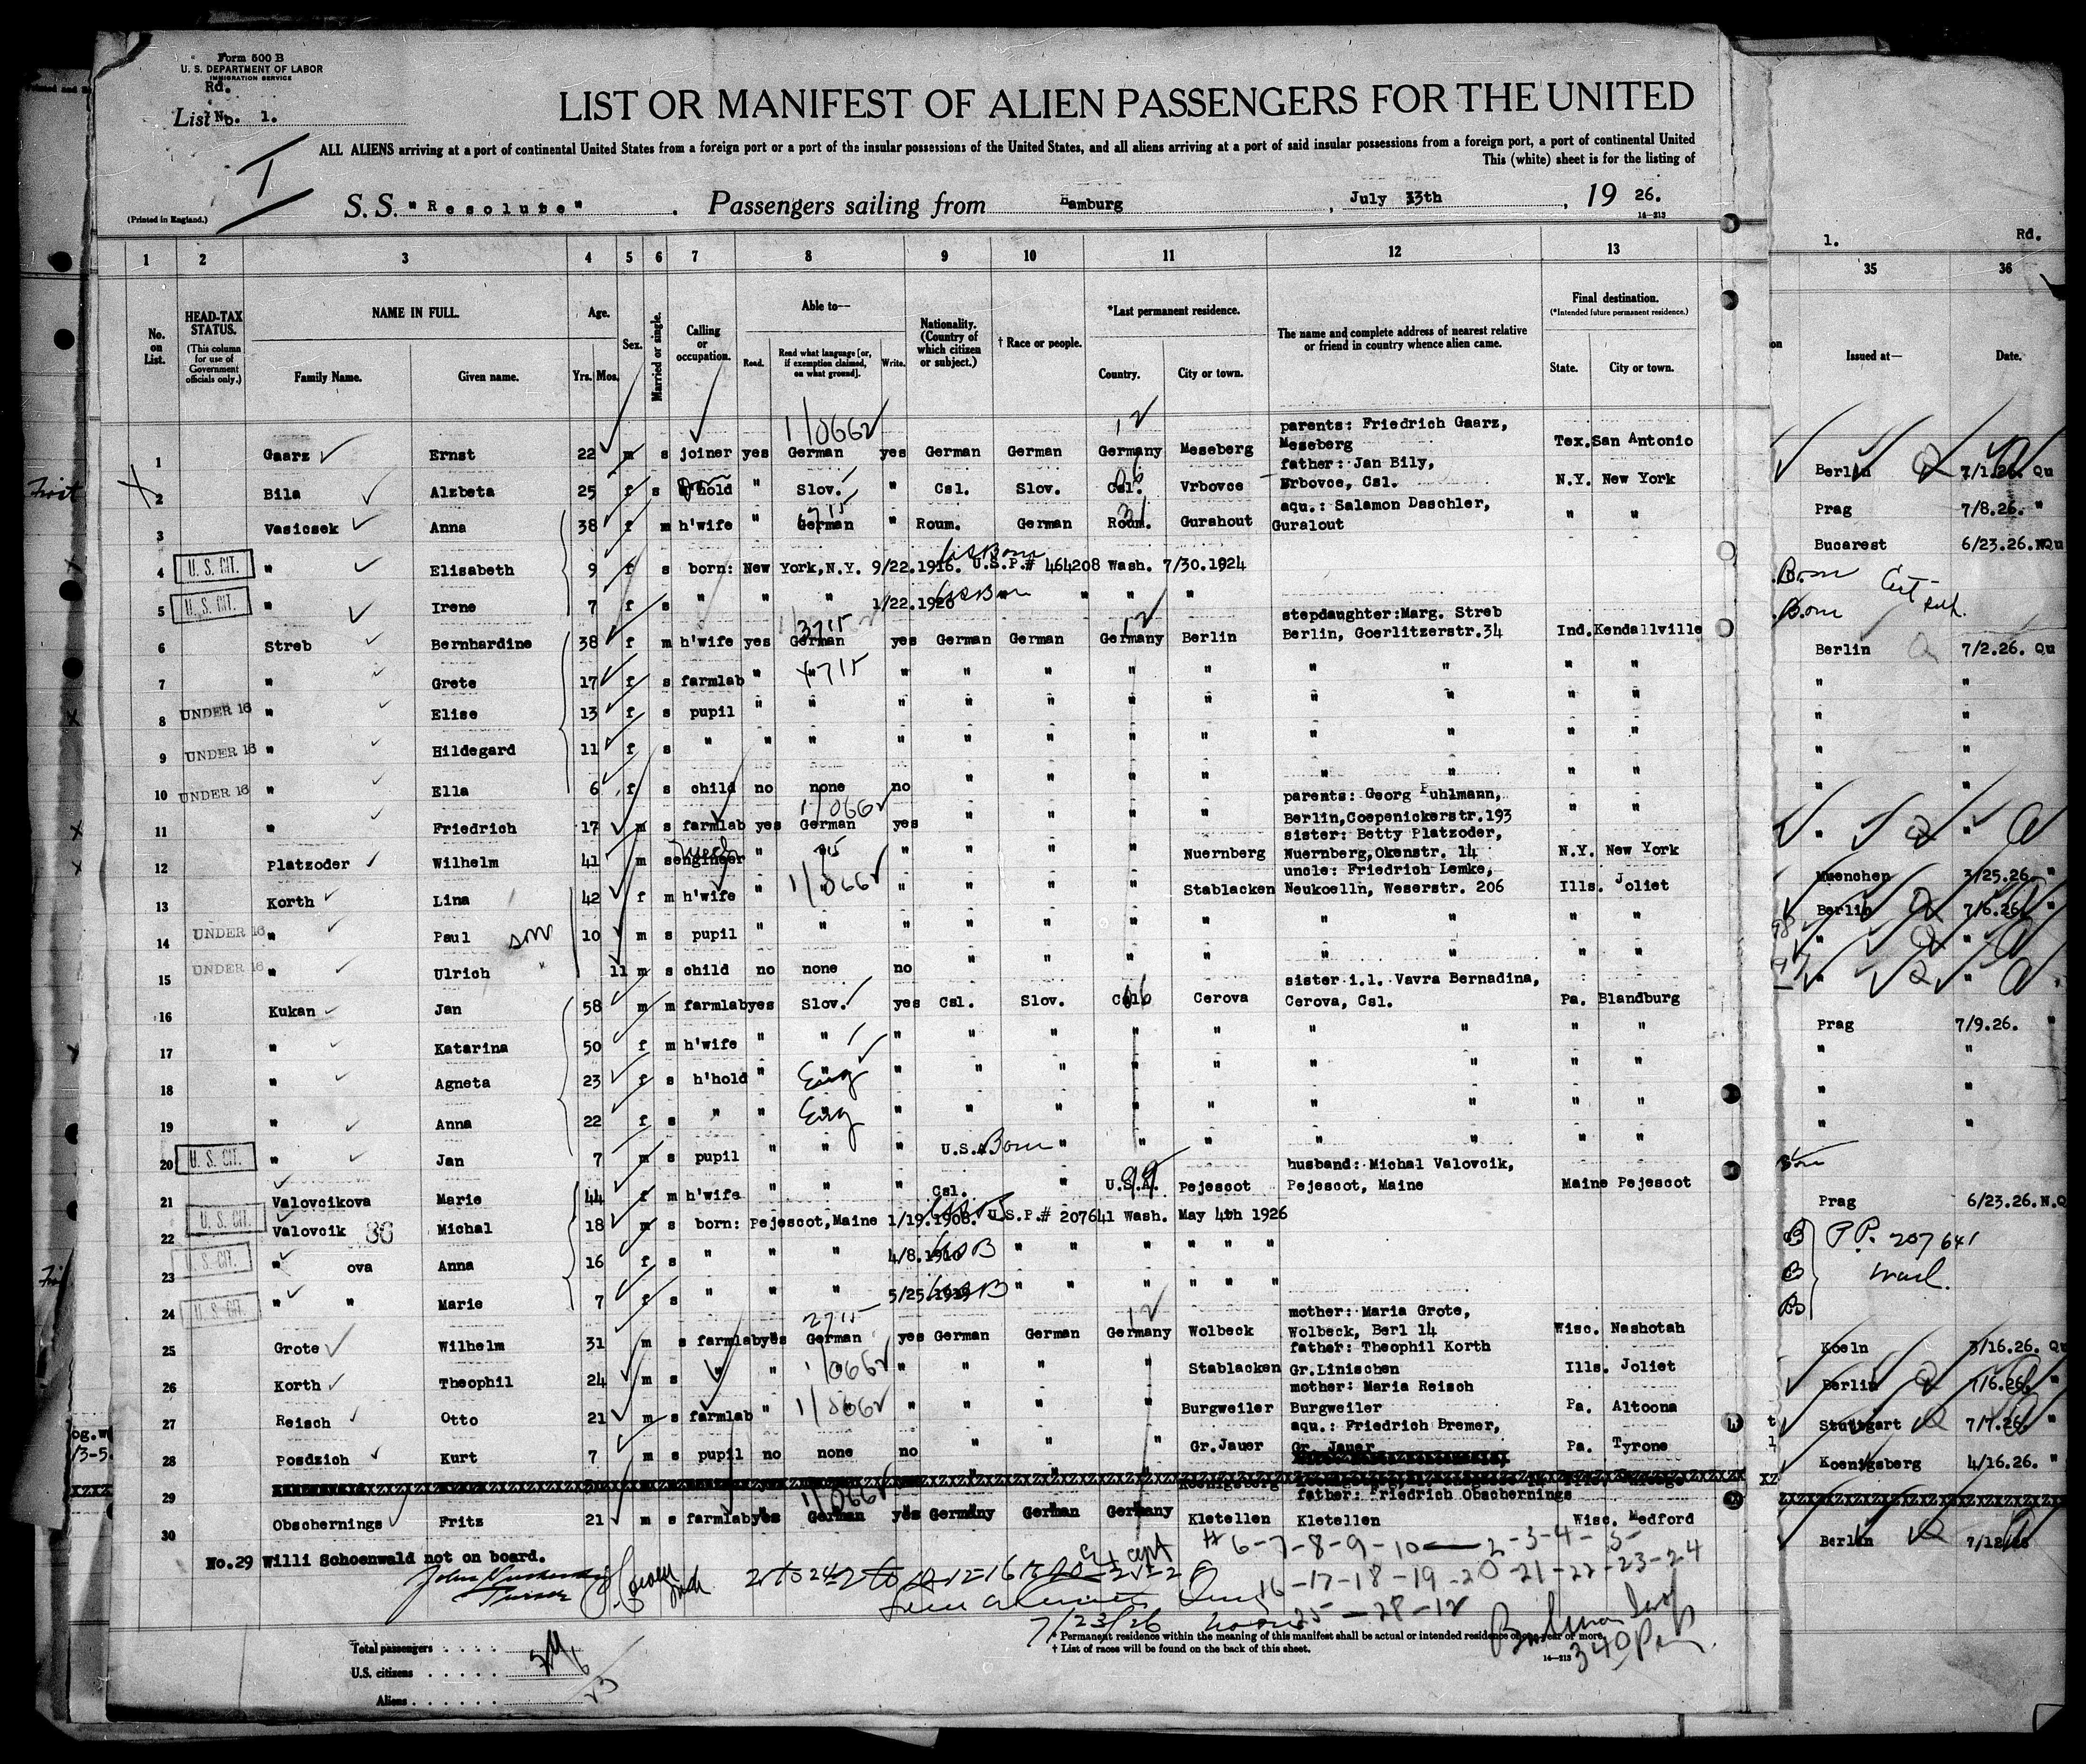 Form 500 B
U. S. DEPARTMENT OF LABOR
IMMIGRATION SERVICE
Rd.
List No. 1.
I
LIST OR MANIFEST OF ALIEN PASSENGERS FOR THE UNITED
ALL ALIENS arriving at a port of continental United States from a foreign port or a port of the insular possessions of the United States, and all aliens arriving at a port of said insular possessions from a foreign port, a port of continental United
This (white) sheet is for the listing of
(Printed in England.)
S. S. "Resolute" . Passengers sailing from Hamburg , July 13th , 19 26.
14-213
1. Rd.
1 2 3 4 5 6 7 8 9 10 11 12 13 35 36
No. on List.
HEAD-TAX STATUS.
(This column for use of Government officials only.)
NAME IN FULL.
Family Name. Given name.
Age.
Yrs. Mos.
Sex.
Married or single.
Calling or occupation.
Able to—
Read. Read what language [or, if exemption claimed, on what ground]. Write.
Nationality. (Country of which citizen or subject.)
† Race or people.
*Last permanent residence.
Country. City or town.
The name and complete address of nearest relative or friend in country whence alien came.
Final destination.
(*Intended future permanent residence.)
State. City or town.
Issued at— Date.
1 Gaarz Ernst 22 m s joiner yes German yes German German Germany Meseberg parents: Friedrich Gaarz, Meseberg Tex. San Antonio Berlin 7/1.26. Qu
2 Bila Alzbeta 25 f s hold " Slov. " Csl. Slov. Csl. Vrbovce father: Jan Bily, Vrbovce, Csl. N.Y. New York Prag 7/8.26. "
3 Vasicsek Anna 38 f m h'wife " German " Roum. German Roum. Gurahout aqu.: Salamon Daschler, Guralout " " Bucarest 6/23.26. NQu
4 U. S. CIT. " Elisabeth 9 f s born: New York, N.Y. 9/22.1916. U.S.P.# 464208 Wash. 7/30.1924 US Born Born
5 U. S. CIT. " Irene 7 f s " " " 1/22.1920 US Born " " " " Born
6 Streb Bernhardine 38 f m h'wife yes German yes German German Germany Berlin stepdaughter: Marg. Streb Berlin, Goerlitzerstr. 34 Ind. Kendallville Berlin 7/2.26. Qu
7 " Grete 17 f s farmlab " 4715 " " " " " " " " " " "
8 UNDER 16 " Elise 13 f s pupil " " " " " " " " " " " " "
9 UNDER 16 " Hildegard 11 f s " " " " " " " " " " " " " "
10 UNDER 16 " Ella 6 f s child no none no " " " " " " " " " "
11 " Friedrich 17 m s farmlab yes German yes " " " " parents: Georg Puhlmann, Berlin, Coepenickerstr. 193 " " " "
12 Platzoder Wilhelm 41 m s engineer " " " " " " Nuernberg sister: Betty Platzoder, Nuernberg, Okenstr. 14 N.Y. New York Muenchen 3/25.26. "
13 Korth Lina 42 f m h'wife " " " " " " Stablacken uncle: Friedrich Lemke, Neukoelln, Weserstr. 206 Ills. Joliet Berlin 7/6.26. "
14 UNDER 16 " Paul son 10 m s pupil " " " " " " " " " " " " "
15 UNDER 16 " Ulrich " 11 m s child no none no " " " " " " " " " "
16 Kukan Jan 58 m m farmlab yes Slov. yes Csl. Slov. Csl. Cerova sister i.l. Vavra Bernadina, Cerova, Csl. Pa. Blandburg Prag 7/9.26. "
17 " Katarina 50 f m h'wife " " " " " " " " " " " " "
18 " Agneta 23 f s h'hold " Eng " " " " " " " " " " "
19 " Anna 22 f s " " Eng " " " " " " " " " " "
20 U. S. CIT. " Jan 7 m s pupil " " " U.S.A. Born " " " " " " Born
21 Valovcikova Marie 44 f m h'wife " " " Csl. " U.S.A. Pejescot husband: Michal Valovcik, Pejescot, Maine Maine Pejescot Prag 6/23.26. N.Q
22 U. S. CIT. Valovcik 86 Michal 18 m s born: Pejescot, Maine 1/19.1908. U.S.P.# 207641 Wash. May 4th 1926 USB B P.P. 207641
23 U. S. CIT. " ova Anna 16 f s " " " 4/8.1910 USB " " " " " B
24 U. S. CIT. " " Marie 7 f s " " " 5/25.1919 USB " " " " " B
25 Grote Wilhelm 31 m s farmlab yes German yes German German Germany Wolbeck mother: Maria Grote, Wolbeck, Berl 14 Wisc. Nashotah Koeln 3/16.26. Qu
26 Korth Theophil 24 m s " " " " " " " Stablacken father: Theophil Korth Gr.Linischen Ills. Joliet Berlin 7/6.26. "
27 Reisch Otto 21 m s farmlab " " " " " " Burgweiler mother: Maria Reisch Burgweiler Pa. Altoona Stuttgart 7/7.26. "
28 Posdzich Kurt 7 m s pupil no none no " " " Gr.Jauer aqu.: Friedrich Bremer, Gr. Jauer Pa. Tyrone Koenigsberg 4/16.26. "
29
30 Obschernings Fritz 21 m s farmlab yes German yes Germany German Germany Kletellen father: Friedrich Obschernings Kletellen Wisc. Medford Berlin 7/12/26
No.29 Willi Schoenwald not on board.
# 6-7-8-9-10 — 2-3-4-5-
16-17-18-19-20-21-22-23-24
25-28-12
7/23/26
340 Pm
Total passengers . . . .
U.S. citizens . . . . .
Aliens . . . . . .
* Permanent residence within the meaning of this manifest shall be actual or intended residence of one year or more.
† List of races will be found on the back of this sheet.
14-213